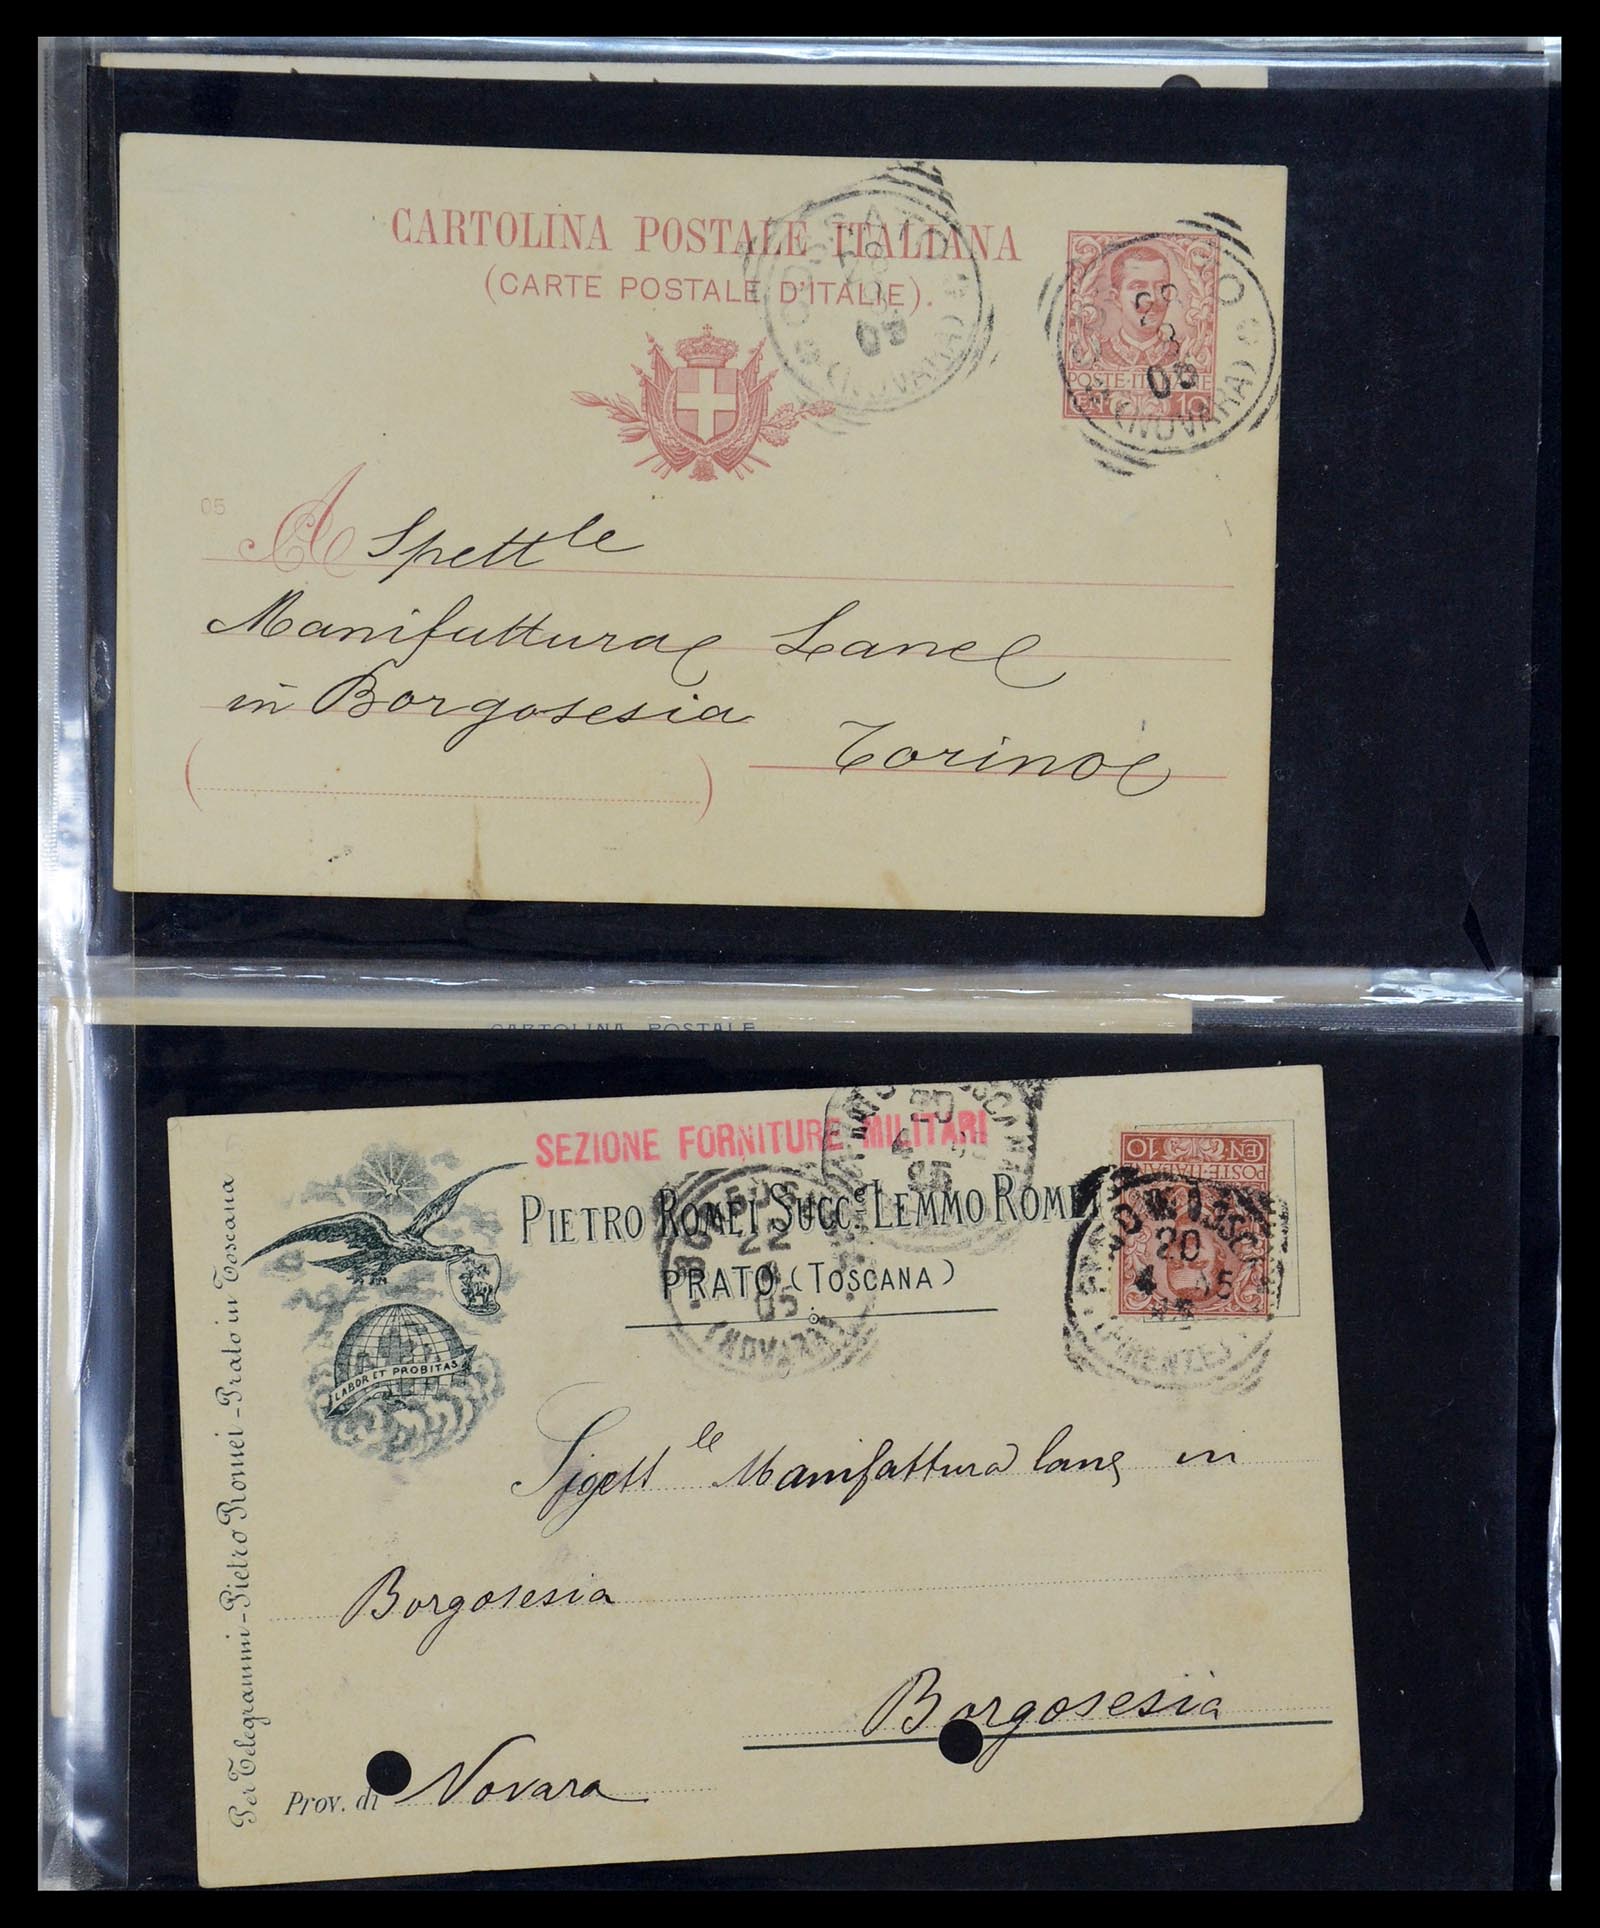 CARTOLINA POSTALE ITALIANA
(CARTE POSTALE D'ITALIE).
28
3
05
(NOVARA)
POSTE ITALIANE
CEN. 10
(NOVARA)
05
A Spettle
Manifattura Lane
in Borgosesia
Torino
(
)
CARTOLINA POSTALE
SEZIONE FORNITURE MILITARI
PIETRO ROMEI SUCC.e LEMMO ROMEI
PRATO (TOSCANA)
LABOR ET PROBITAS
Per Telegrammi - Pietro Romei - Prato in Toscana
20
4
05
22
05
(NOVARA)
CEN. 10
POSTE ITALIANE
20
4 05
(FIRENZE)
Spett le Manifattura lane in
Borgosesia
Borgosesia
Prov. di Novara